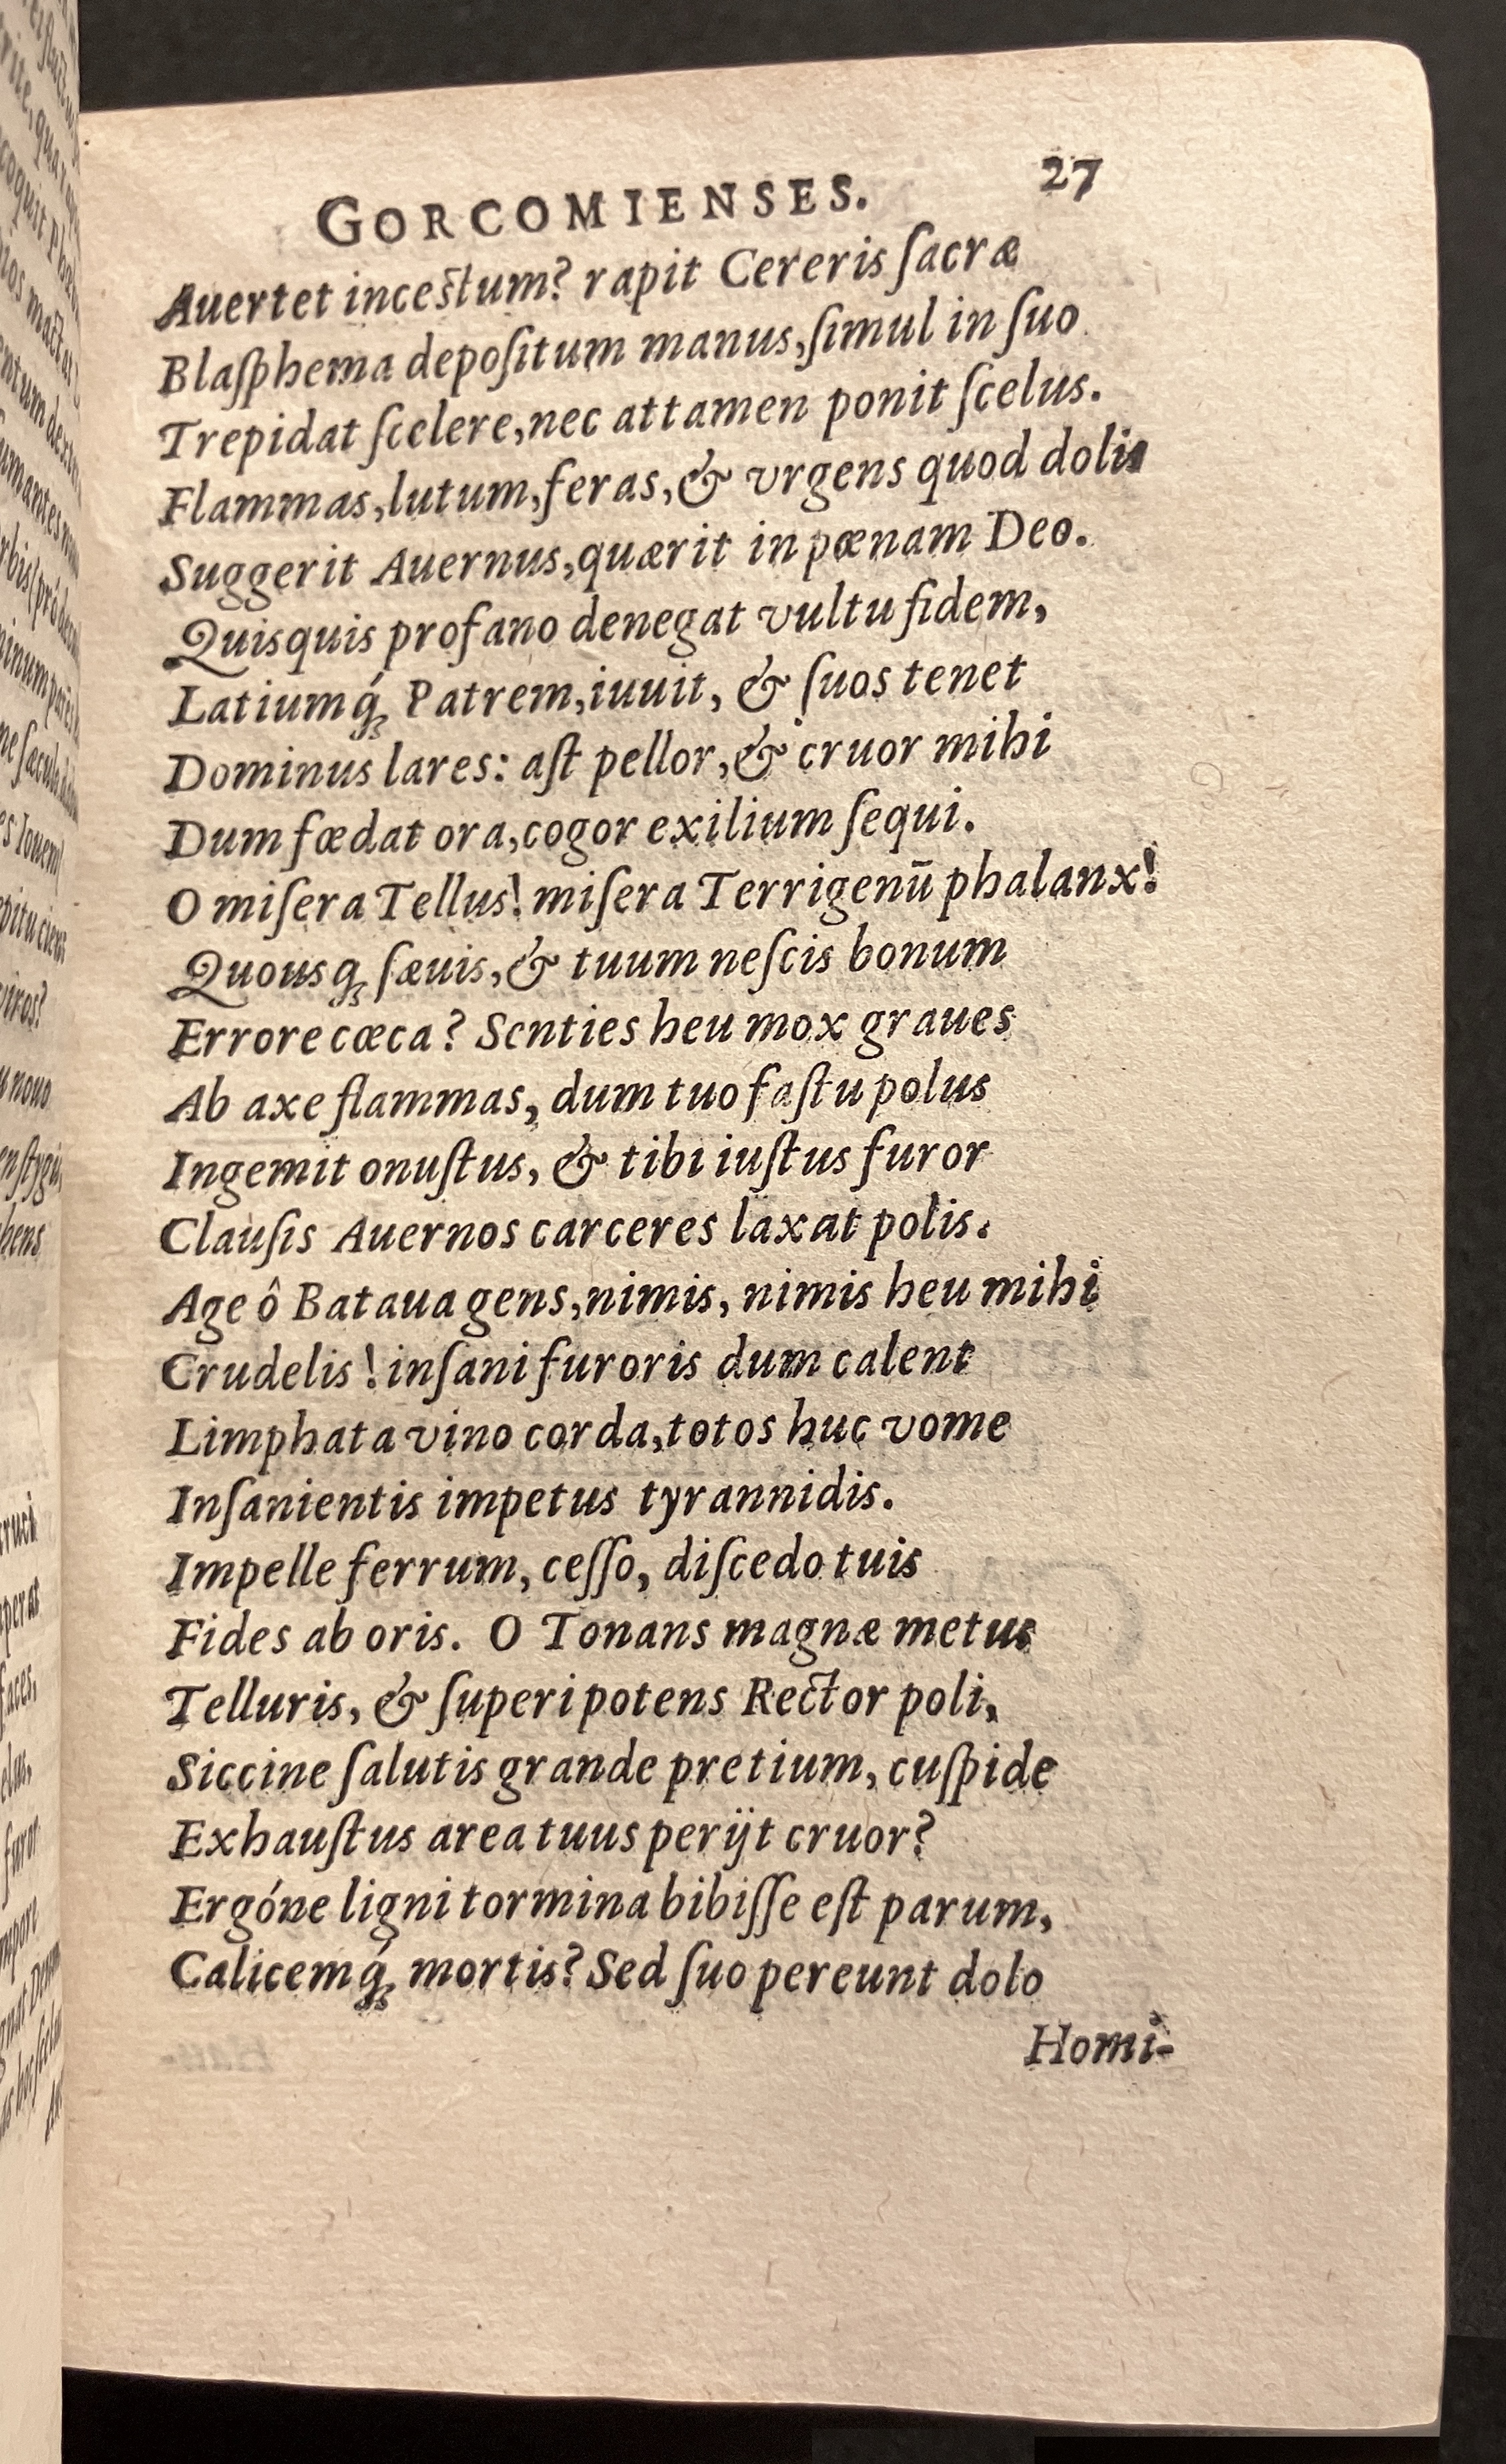 GORCOMIENSES. 27
Auertet incestum? rapit Cereris ſacræ
Blaſphema depoſitum manus, ſimul in ſuo
Trepidat ſcelere, nec attamen ponit ſcelus.
Flammas, lutum, feras, & vrgens quod dolis
Suggerit Auernus, quærit in pœnam Deo.
Quisquis profano denegat vultu fidem,
Latiumq́ꝫ Patrem, iuuit, & ſuos tenet
Dominus lares: aſt pellor, & cruor mihi
Dum fœdat ora, cogor exilium ſequi.
O miſera Tellus! miſera Terrigenū phalanx!
Quousqꝫ ſæuis, & tuum neſcis bonum
Errore cœca? Senties heu mox graues
Ab axe flammas, dum tuo faſtu polus
Ingemit onuſtus, & tibi iuſtus furor
Clauſis Auernos carceres laxat polis.
Age ô Bataua gens, nimis, nimis heu mihi
Crudelis! inſani furoris dum calent
Limphata vino corda, totos huc vome
Inſanientis impetus tyrannidis.
Impelle ferrum, ceſſo, diſcedo tuis
Fides ab oris. O Tonans magnæ metus
Telluris, & ſuperi potens Rector poli,
Siccine ſalutis grande pretium, cuſpide
Exhauſtus area tuus perijt cruor?
Ergóne ligni tormina bibiſſe eſt parum,
Calicemq́ꝫ mortis? Sed ſuo pereunt dolo
Homi-